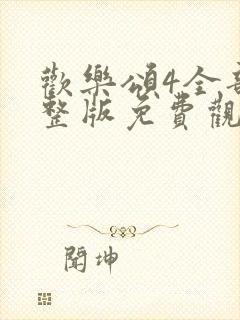 歡樂頌4全
整版免費觀
聞坤